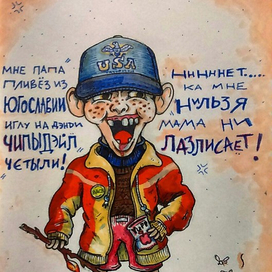 USA
МНЕ ПАПА
ПЛИВЁЗ ИЗ
ЮГОСЛАВИИ
ИГЛУ НА ДЭНДИ
ЧИПЫДЭЙЛ
ЧЕТЫЛИ!
НИНИНЕТ.....
КА МНЕ
НУЛЬЗЯ
МАМА НИ
ЛАЗЛИСАЕТ!